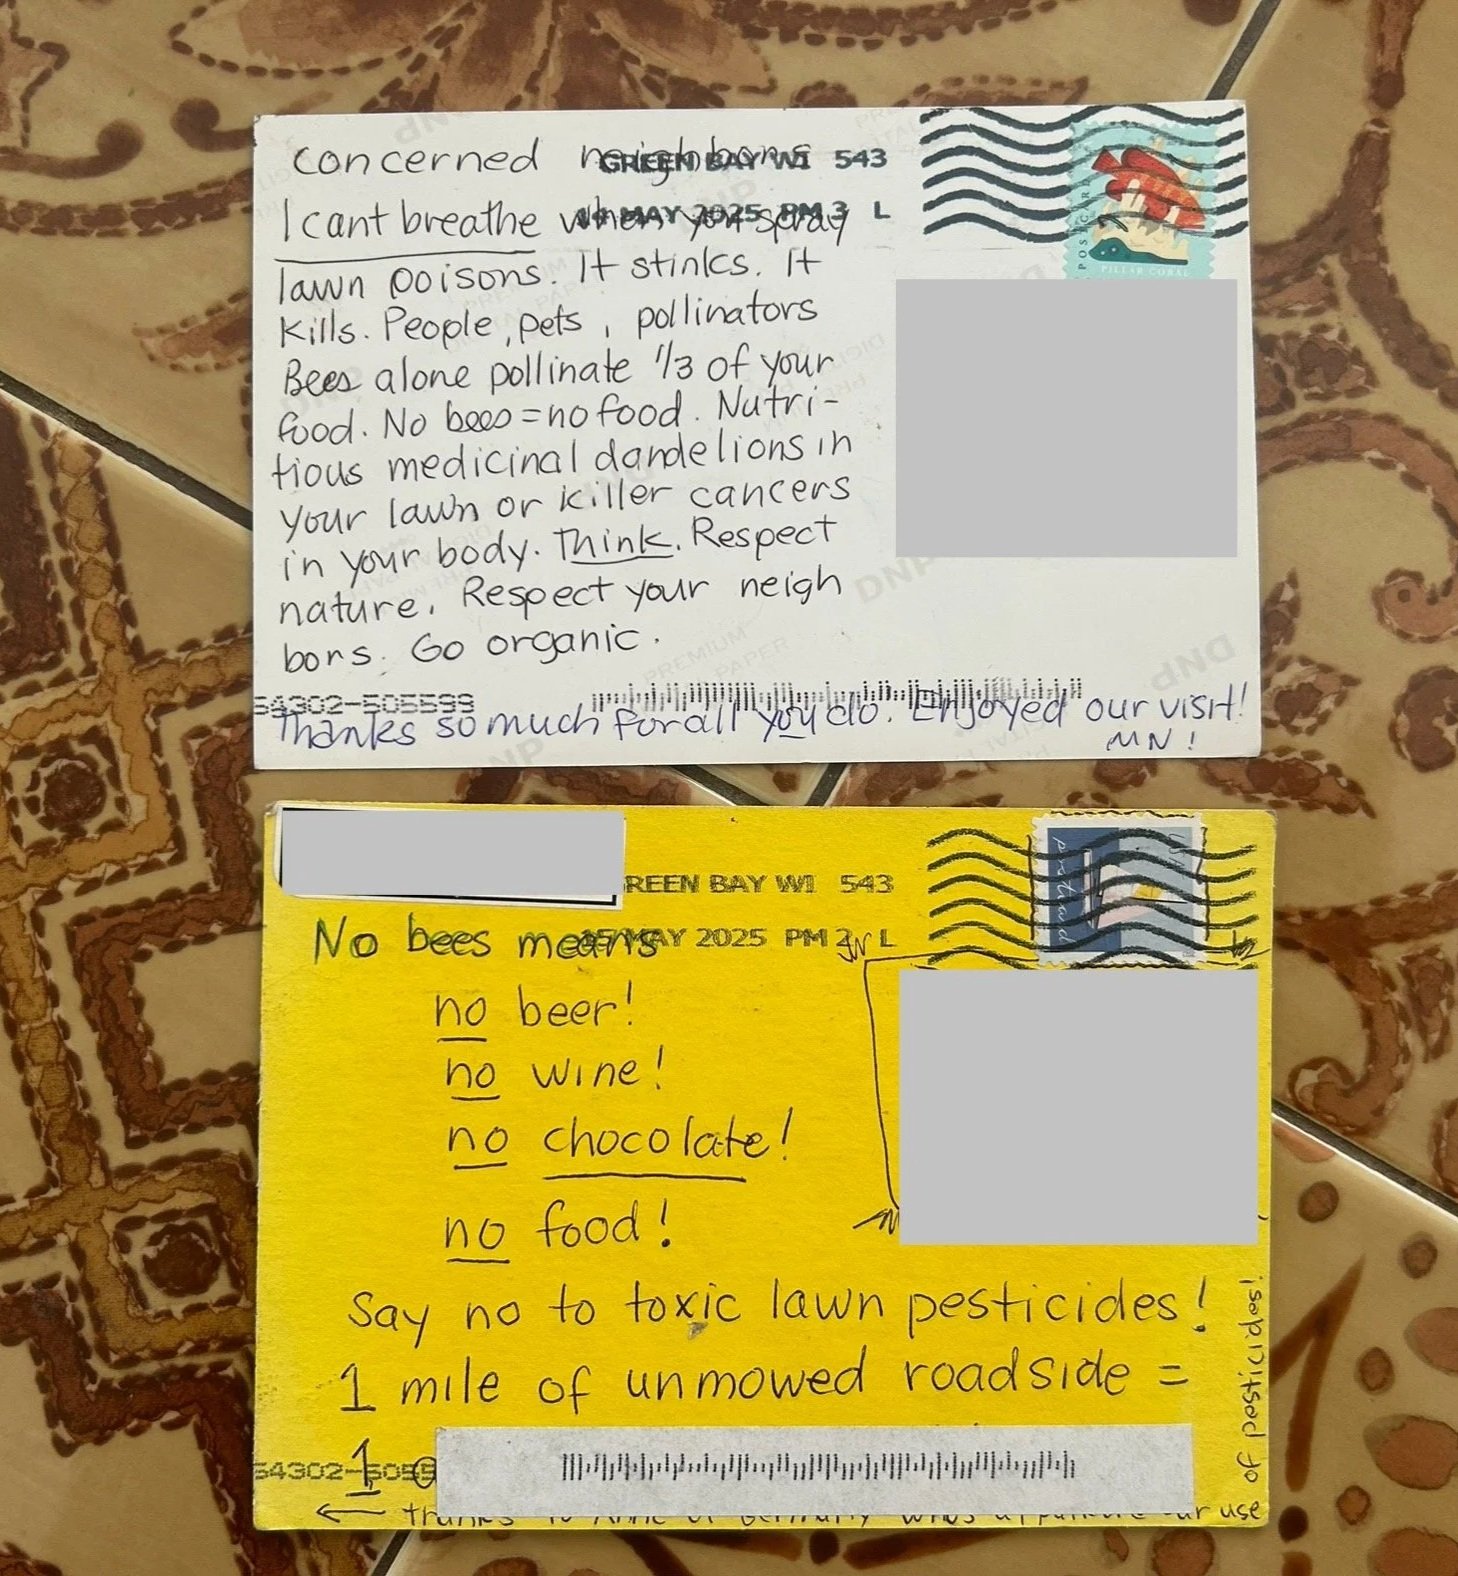 concerned neighbors
GREEN BAY WI 543
I cant breathe when you spray
MAY 2025 PM 3 L
lawn poisons. It stinks. It
kills. People, pets, pollinators
Bees alone pollinate 1/3 of your
food. No bees = no food. Nutri-
tious medicinal dandelions in
your lawn or killer cancers
in your body. Think. Respect
nature. Respect your neigh
bors. Go organic.
54302-505599
Thanks so much for all you do. Enjoyed our visit!
MN!
POSTCARD
PILLAR CORAL
DNP
PREMIUM
PAPER
DNP
GREEN BAY WI 543
No bees means
MAY 2025 PM 2 L
no beer!
no wine!
no chocolate!
no food!
Say no to toxic lawn pesticides!
1 mile of unmowed roadside =
1
54302-5055
← thanks to
ur use
of pesticides!
postcard